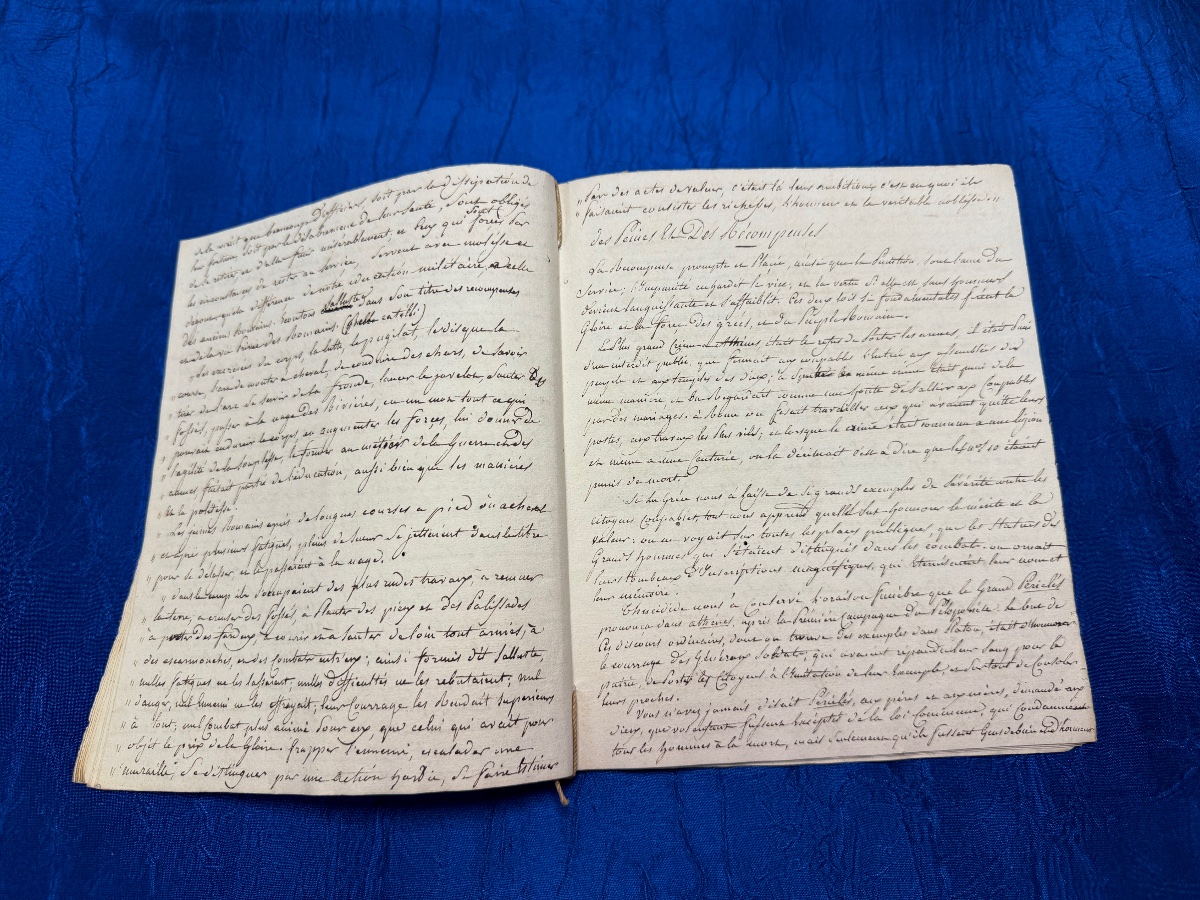 de là vient que beaucoup d'officiers, soit par la dissipation de
leur fortune, soit par le délabrement de leur santé, sont obligés
de se retirer et d'aller finir misérablement, et ceux qui sont forcés par
les circonstances de rester au service, servent avec molesse et
découragement. différence de notre éducation militaire, a celle
des anciens Romains. Ecoutons Salluste dans son titre des recompenses
et de la vie privée des Romains. (Bello Catelli)
" Les exercices du corps, la lutte, le pugilat, le disque la
" course, l'art de monter a cheval, de conduire des chars, de savoir
" tirer de l'arc se servir de la fronde, lancer le javelot, sauter des
" fossés, passer à la nage des Rivières, en un mot tout ce qui
" pouvait endurcir le corps, en augmenter les forces, lui donner de
" l'agilité de la souplesse, le former au métier de la Guerre et des
" armes faisait partie de l'éducation, aussi bien que les manières
" de la politesse.
" Les jeunes Romains après de longues courses a pied ou a cheval
" et après plusieurs fatigues, pleins de sueur se jettoient dans le tibre
" pour se délasser, et le passoient à la nage.
" dans le camp ils s'occupaient des plus rudes travaux, a remuer
" la terre, a creuser des fossés, à Planter des pieux et des Palissades
" a porter des fardeaux a courir et a sauter de loin tout armés, à
" des escarmouches, et des combats entr'eux; ainsi formés dit Salluste,
" nulles fatigues ne les lassoient, nulles difficultés ne les rebutaient; nul
" danger, nul ennemi ne les effrayoit, leur courrage les Rendait superieurs
" à Tout; nul combat plus animé pour eux, que celui qui avait pour
" objet le prix de la Gloire. frapper l'ennemi, escalader une
" muraille, se distinguer par une action Hardie, se faire Estimer
" Par des actes de valeur, c'était là leur ambition; c'est en quoi ils
" faisaient consister les richesses, l'honneur et la veritable noblesse."
des Peines Et Des Récompenses
La Récompense prompte et Placée, ainsi que la Punition, sont l'ame du
Service; l'Impunité enhardit le vice; et la vertu si elle est sans honneurs
devient languissante et s'affaiblit. Ces deux lois si fondamentales firent la
Gloire et la force des grecs, et du Peuple Romain.
Le Plus grand Crime a Athènes, était le refus de Porter les armes, il était Puni
d'un interdit public, qui fermait aux coupables l'entrée aux assemblées du
peuple et aux temples des Dieux; à Sparte le même crime était puni de la
même manière, et on Regardait comme une honte de s'allier aux Coupables
par des mariages: à Rome on faisait travailler ceux qui avaient quitté leurs
postes, aux travaux les Plus vils; et lorsque le crime était commun a une légion
et même a une Centurie, on la décimait c'est a Dire que les nos. 10 étaient
punis de mort.
Si la Grèce nous a laissé de si grands exemples de Sévérité contre les
citoyens Coupables, tout nous apprend quelle sut honnorer le mérite et la
valeur: on ne voyait sur toutes les places publiques, que les Statues des
Grands hommes qui s'étaient distingués dans les combats. on ornait
leurs tombeaux d'Inscriptions magnifiques, qui éternisaient leur nom et
leur mémoire.
Thucidide nous à Conservé l'oraison funèbre que le Grand Periclès
prononca dans athenes, après la Première Campagne du Péloponèse: le but de
Ces discours ordinaires, dont on trouve des exemples dans Platon, était d'honnorer
le courrage des Généraux soldats, qui avaient repandu leur sang pour la
patrie, de Porter les citoyens à l'Imitation de leur Exemple, et surtout de Consoler
leurs proches.
Vous n'avez jamais disait Periclès, aux pères et aux mères, demandé aux
dieux, que vos enfants fussent exceptés de la loi Commune, qui condamne
tous les hommes à la mort, mais seulement qu'ils fussent Gens de bien et d'honneur